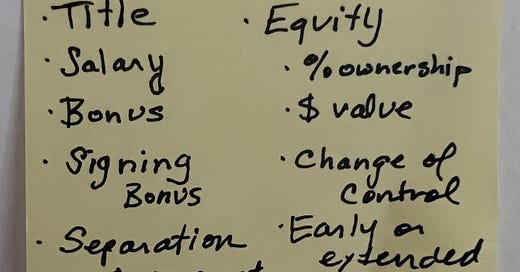 · Title
· Salary
· Bonus
· Signing
Bonus
· Separation
· Equity
· % ownership
· $ value
· Change of
Control
· Early or
extended